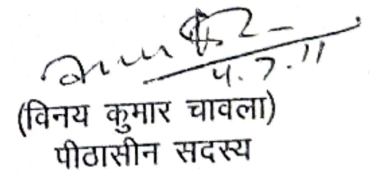 4.7.11
(विनय कुमार चावला)
पीठासीन सदस्य